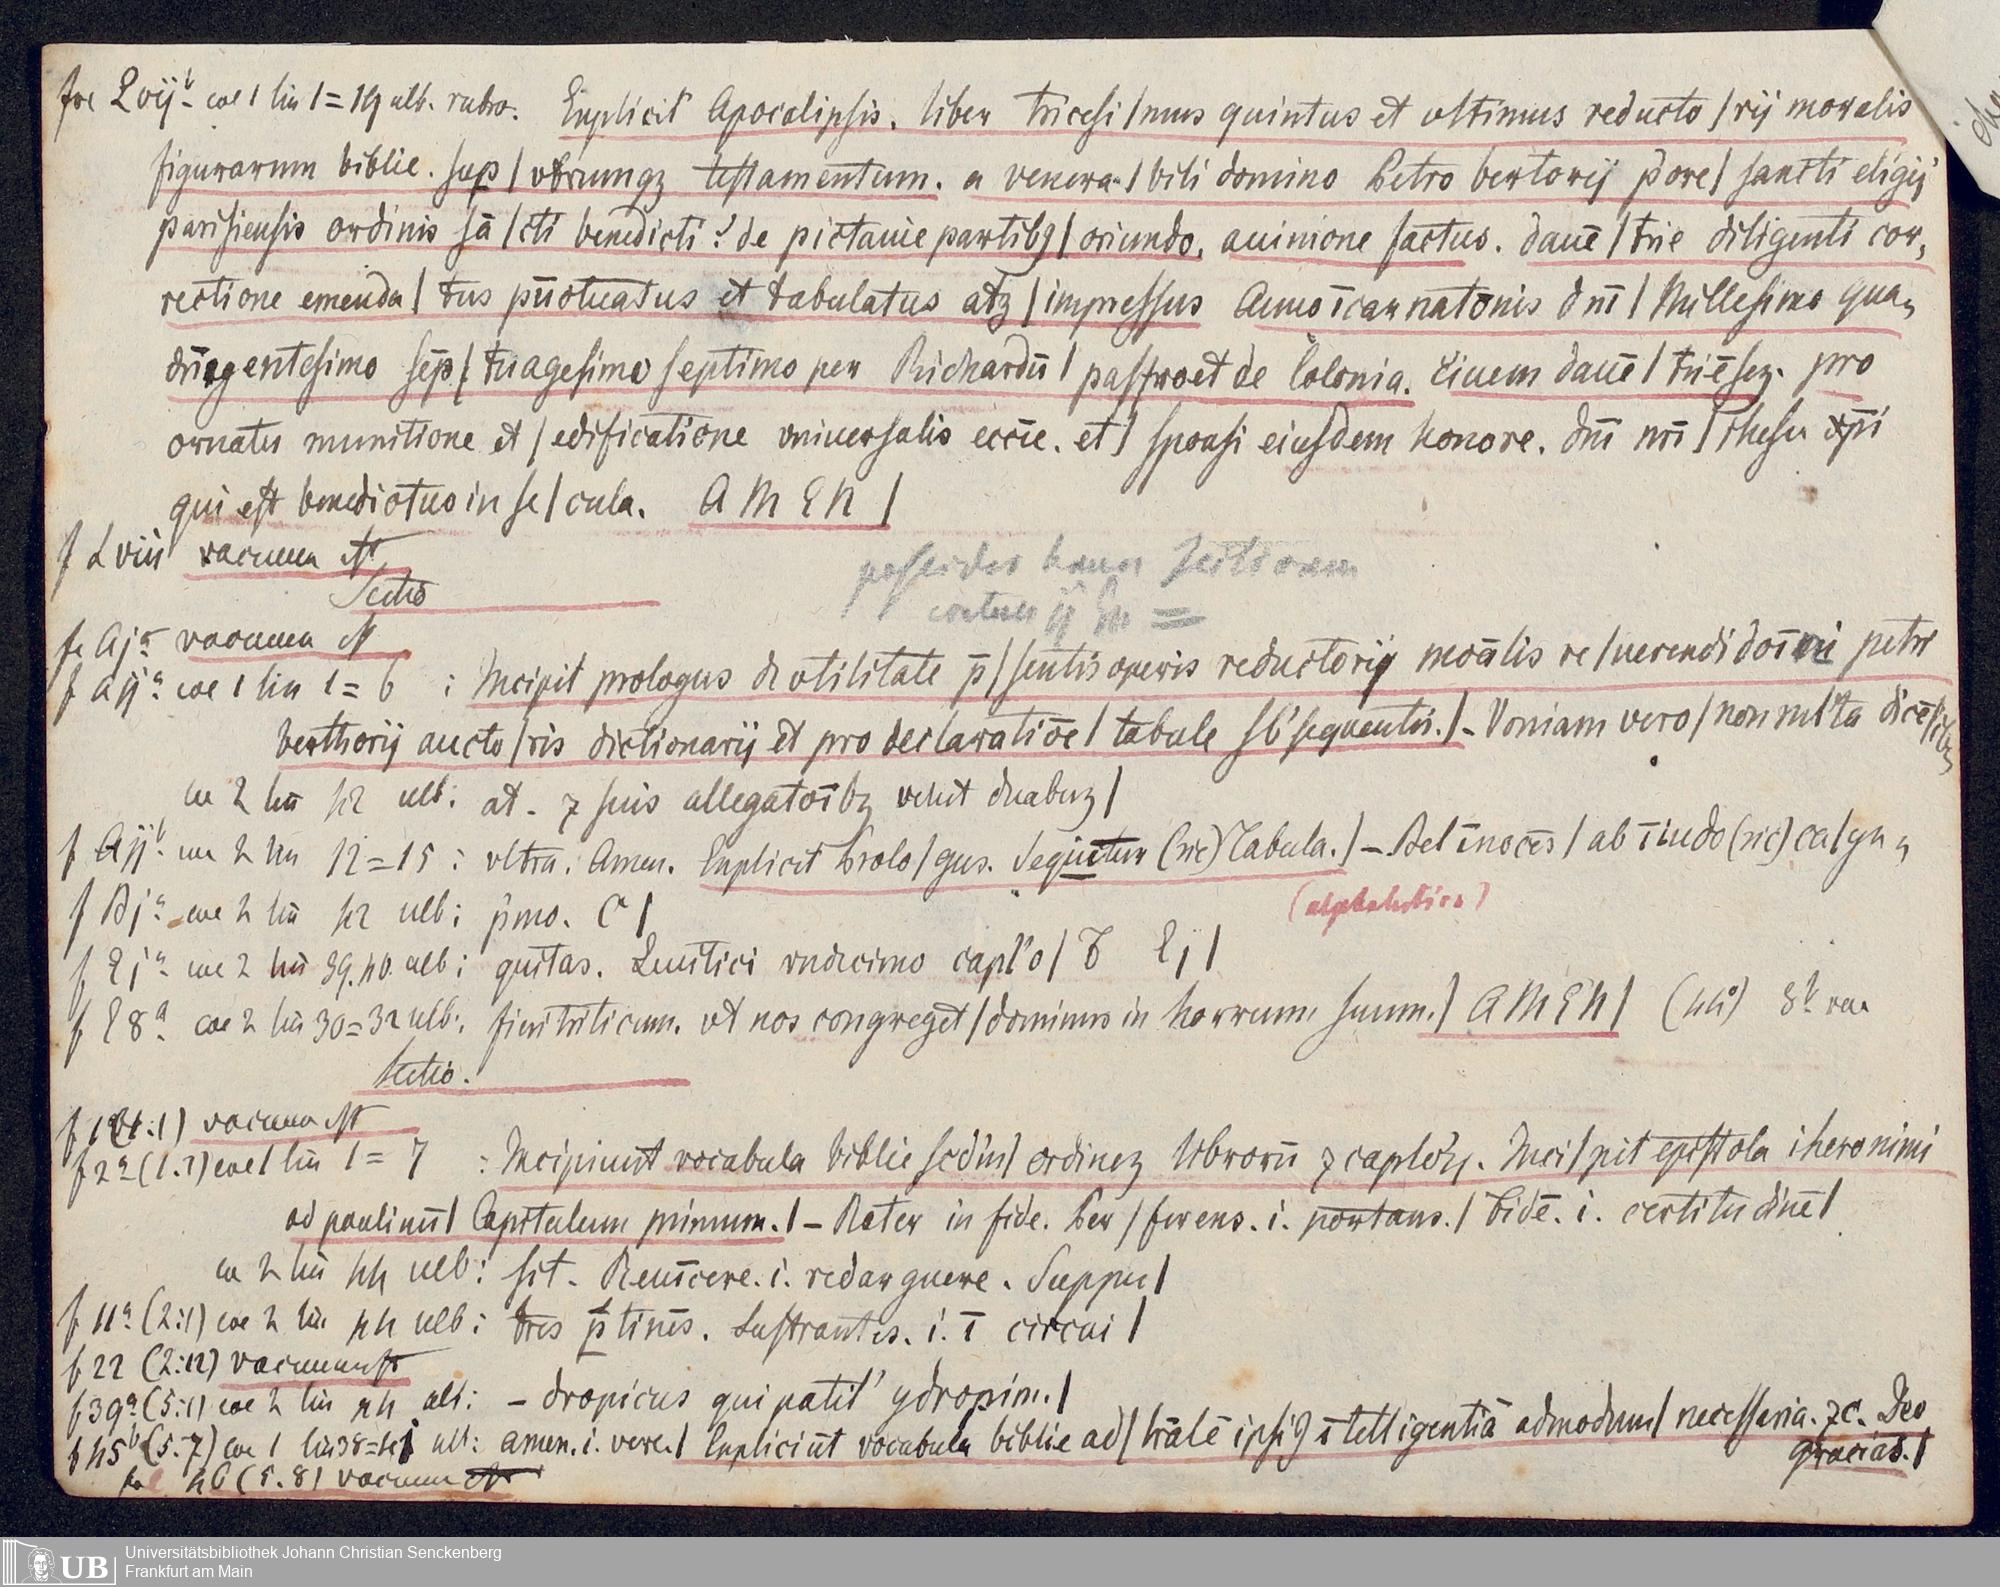 fol Lvij b col 1 lin 1=19 ult. rubro. Explicit Apocalipsis. liber tricesi/mus quintus et ultimus reducto/rij moralis
figurarum biblie. sup/vtrumqz testamentum. a venera-/bili domino Petro bertorij pore/sancti eligij
parisiensis ordinis sā/cti benedicti: de pictauie partibz/oriundo, auinione factus. dauē/trie diligenti cor,
rectione emenda/tus pūctuatus et tabulatus atz/impressus Anno īcarnatonis dnī/Millesimo qua,
drīgentesimo sēp/tuagesimo septimo per Richardū/paffroet de Colonia. Ciuem dauē/triēsez. pro
ornatu munitione et/edificatione vniuersalis eccīe. et/sponsi eiusdem honore. dnī nrī/Ihesu xpī
qui est benedictus in se/cula. AMEN/
f Lviij vacuum est
Sectio
possidet hanc
f Aj a vacuum est
f aij a col 1 lin 1=6 : Incipit prologus de vtilitate p̄/sentis operis reductorij morālis re/uerendi domīni petri
berthorij aucto/ris dictionarij et pro declaratiōe/tabule sb'sequentis./- Voniam vero/non mlta dicē
col 2 lin 42 ult: at- 7 suis allegatoībz velut duabuz/
f Aij b col 2 lin 12=15 : vltra. Amen. Explicit Prolo/gus. Sequitur (sic) Tabula./-Bel īnocēs/ab īiudo (sic) ca/yn,
(alphabetica)
f Bj a col 2 lin 42 ult: p̄mo. C/
f Ej a col 2 lin 39.40. ult: guitas. Leuitici vndecimo capl'o/ T Ej/
f E8 a col 2 lin 30=32 ult: fieri triticum. vt nos congreget/dominus in horreum suum./ AMEN/ (44) 8 b vac
Sectio.
f 1 (1:1) vacuum est
f 2 a (1.2) col 1 lin 1=7 : Incipiunt vocabula biblie scdm/ordinez librorū 7 caplōr. Inci/pit epistola iheronimi
ad paulinū/Capitulum primum./-Rater in fide. Per/ferens. i. portans./Fidē. i. certitudinē/
col 2 lin 44 ult: sit- Reuīcere. i. redarguere. Suppu/
f 11 a (2:1) col 2 lin 44 ult: tres p̄tinēs. Lustrantes. i. ī circui/
f 22 (2:12) vacuum est
f 39 a (5:1) col 2 lin 44 ult: -dropicus qui patit' ydropim./
f 45 b (5.7) col 1 lin 38=41 ult: amen. i. vere./Expliciūt vocabula biblie ad/lrālē ipsi9 ītelligentiā admodum/necessaria. 7c. Deo
gracias./
fol 46 (5.8) vacuum est
Universitätsbibliothek Johann Christian Senckenberg
UB Frankfurt am Main